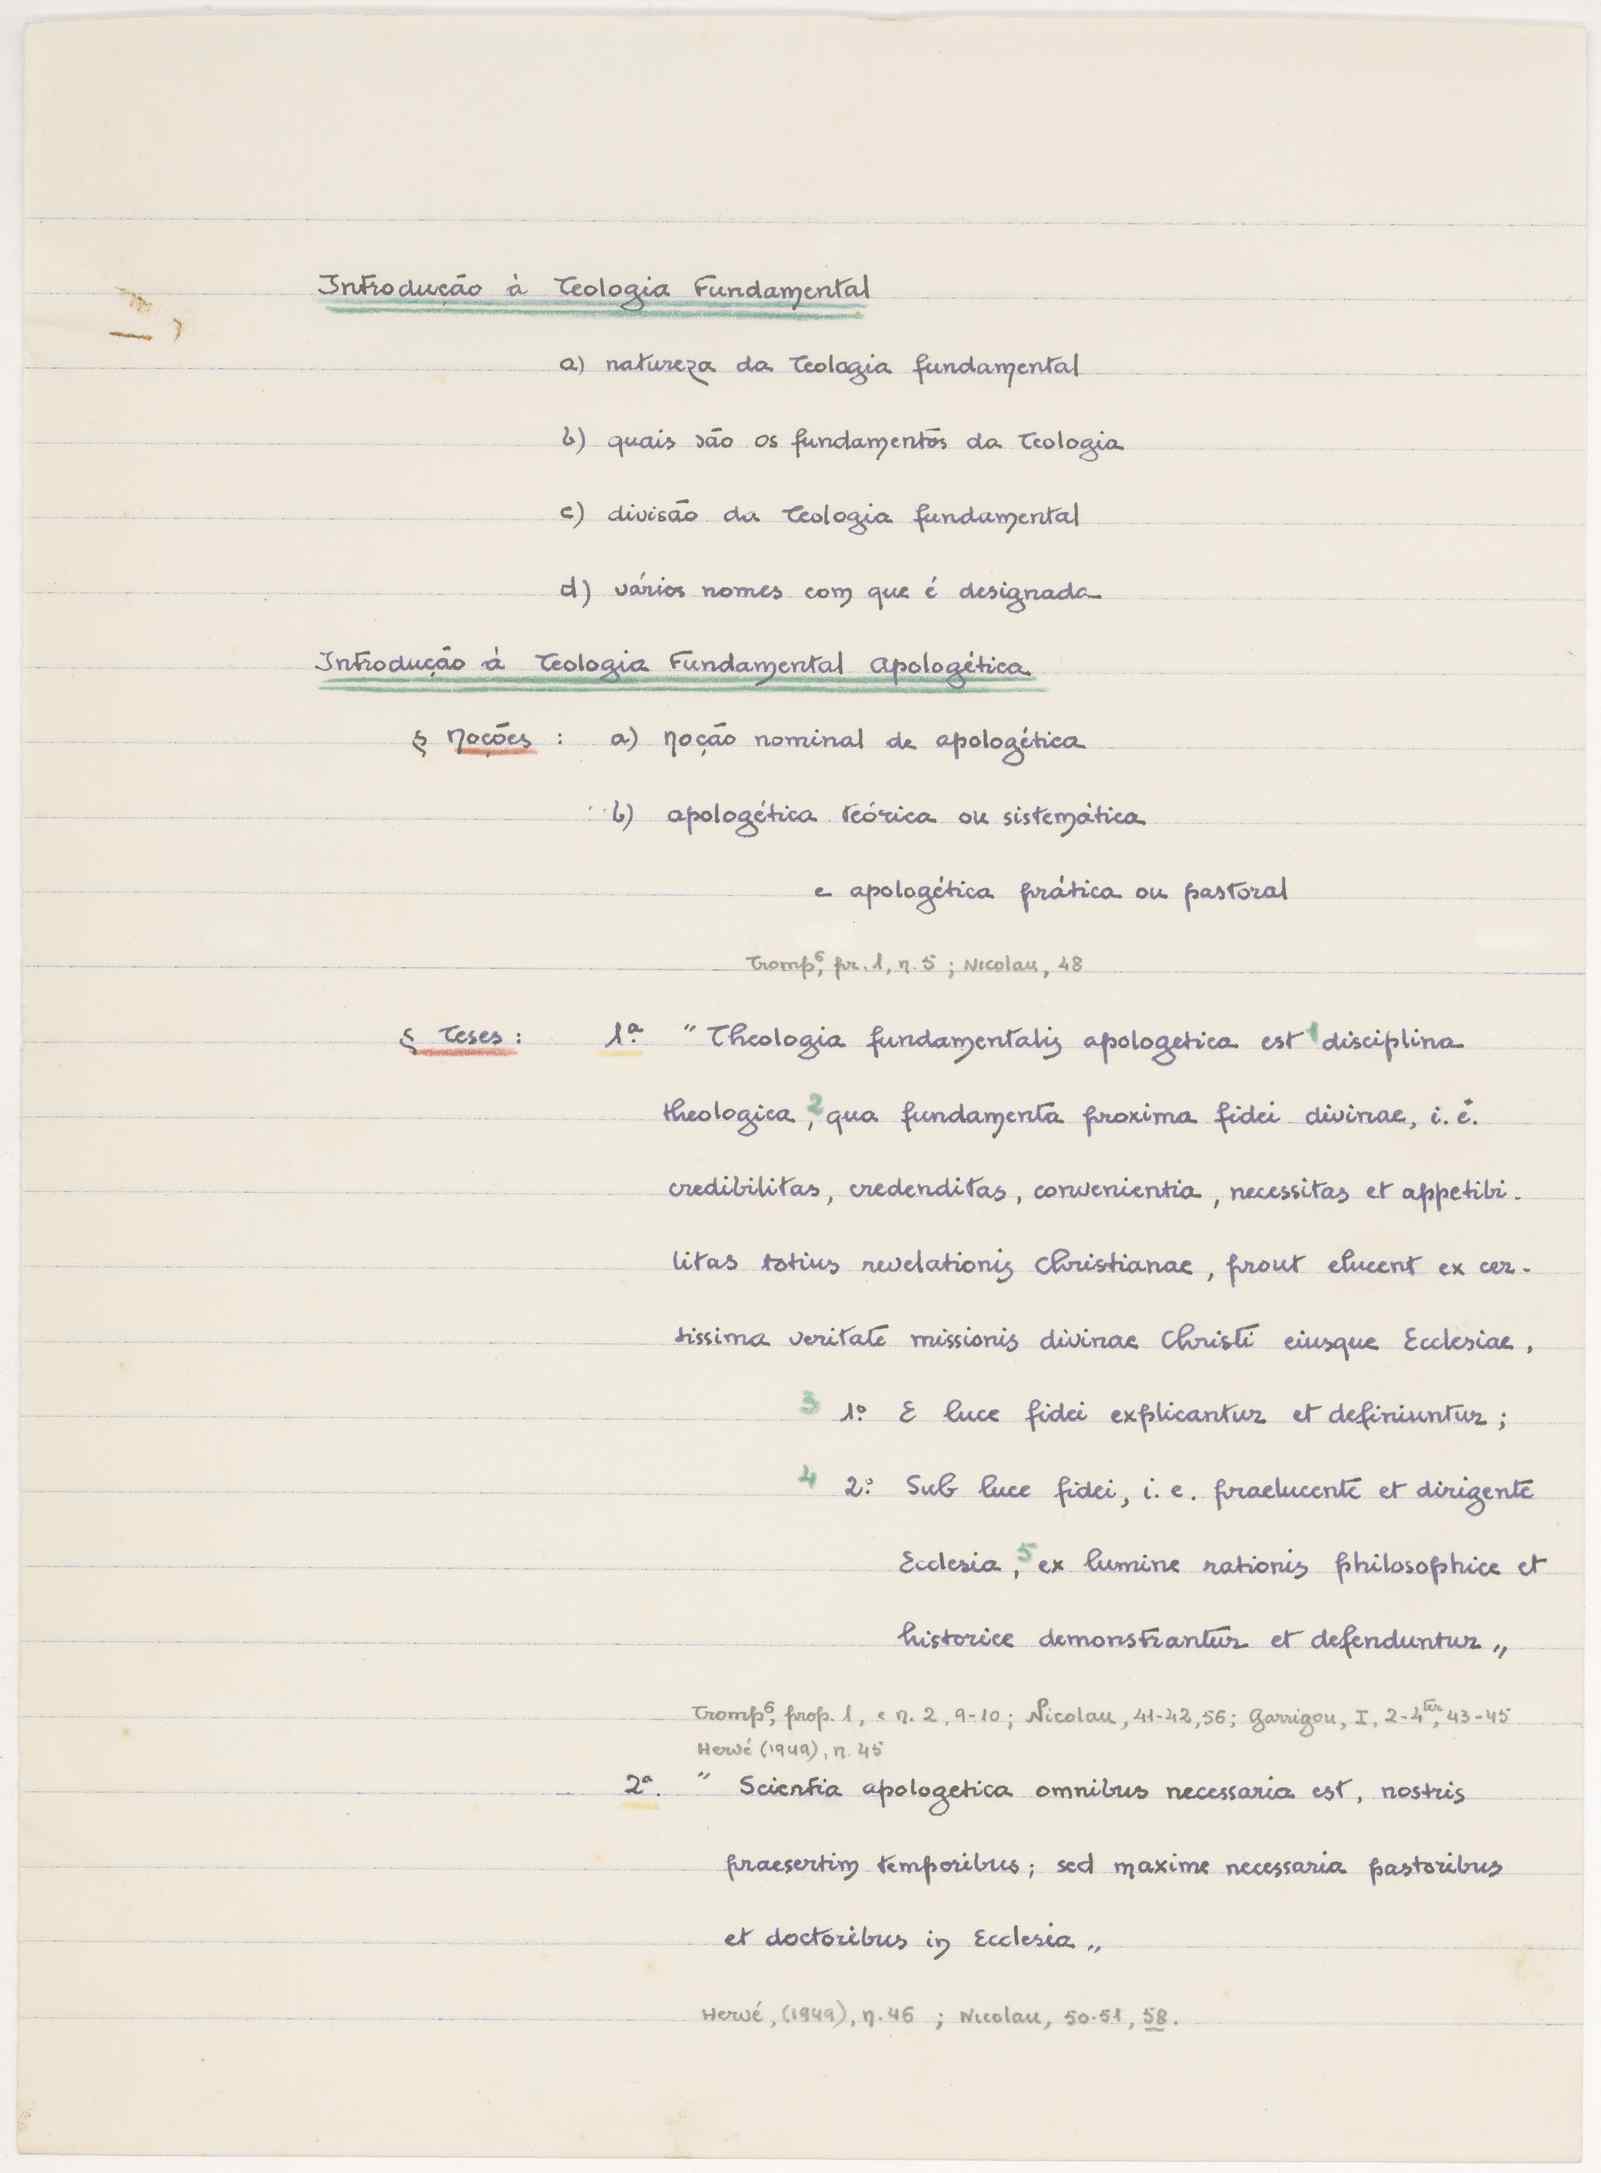 Introdução à Teologia Fundamental
a) natureza da Teologia fundamental
b) quais são os fundamentos da Teologia
c) divisão da Teologia fundamental
d) vários nomes com que é designada
Introdução à Teologia Fundamental Apologética
§ Noções : a) Noção nominal de apologética
b) apologética teórica ou sistemática
e apologética prática ou pastoral
Tromp⁶, pr. 1, n. 5 ; Nicolau, 48
§ Teses : 1ª. " Theologia fundamentalis apologetica est 1 disciplina
theologica, 2 qua fundamenta proxima fidei divinae, i. é.
credibilitas, credenditas, convenientia, necessitas et appetibi-
litas totius revelationis Christianae, prout elucent ex cer-
tissima veritate missionis divinae Christi eiusque Ecclesiae,
3 1º. E luce fidei explicantur et definiuntur ;
4 2º. Sub luce fidei, i. e. praelucente et dirigente
Ecclesia, 5 ex lumine rationis philosophice et
historice demonstrantur et defenduntur "
Tromp⁶, prop. 1, e n. 2, 9-10 ; Nicolau, 41-42, 56 ; Garrigou, I, 2-4 ter, 43-45
Hervé (1949), n. 45
2ª. " Scientia apologetica omnibus necessaria est, nostris
praesertim temporibus ; sed maxime necessaria pastoribus
et doctoribus in Ecclesia "
Hervé, (1949), n. 46 ; Nicolau, 50-51, 58.